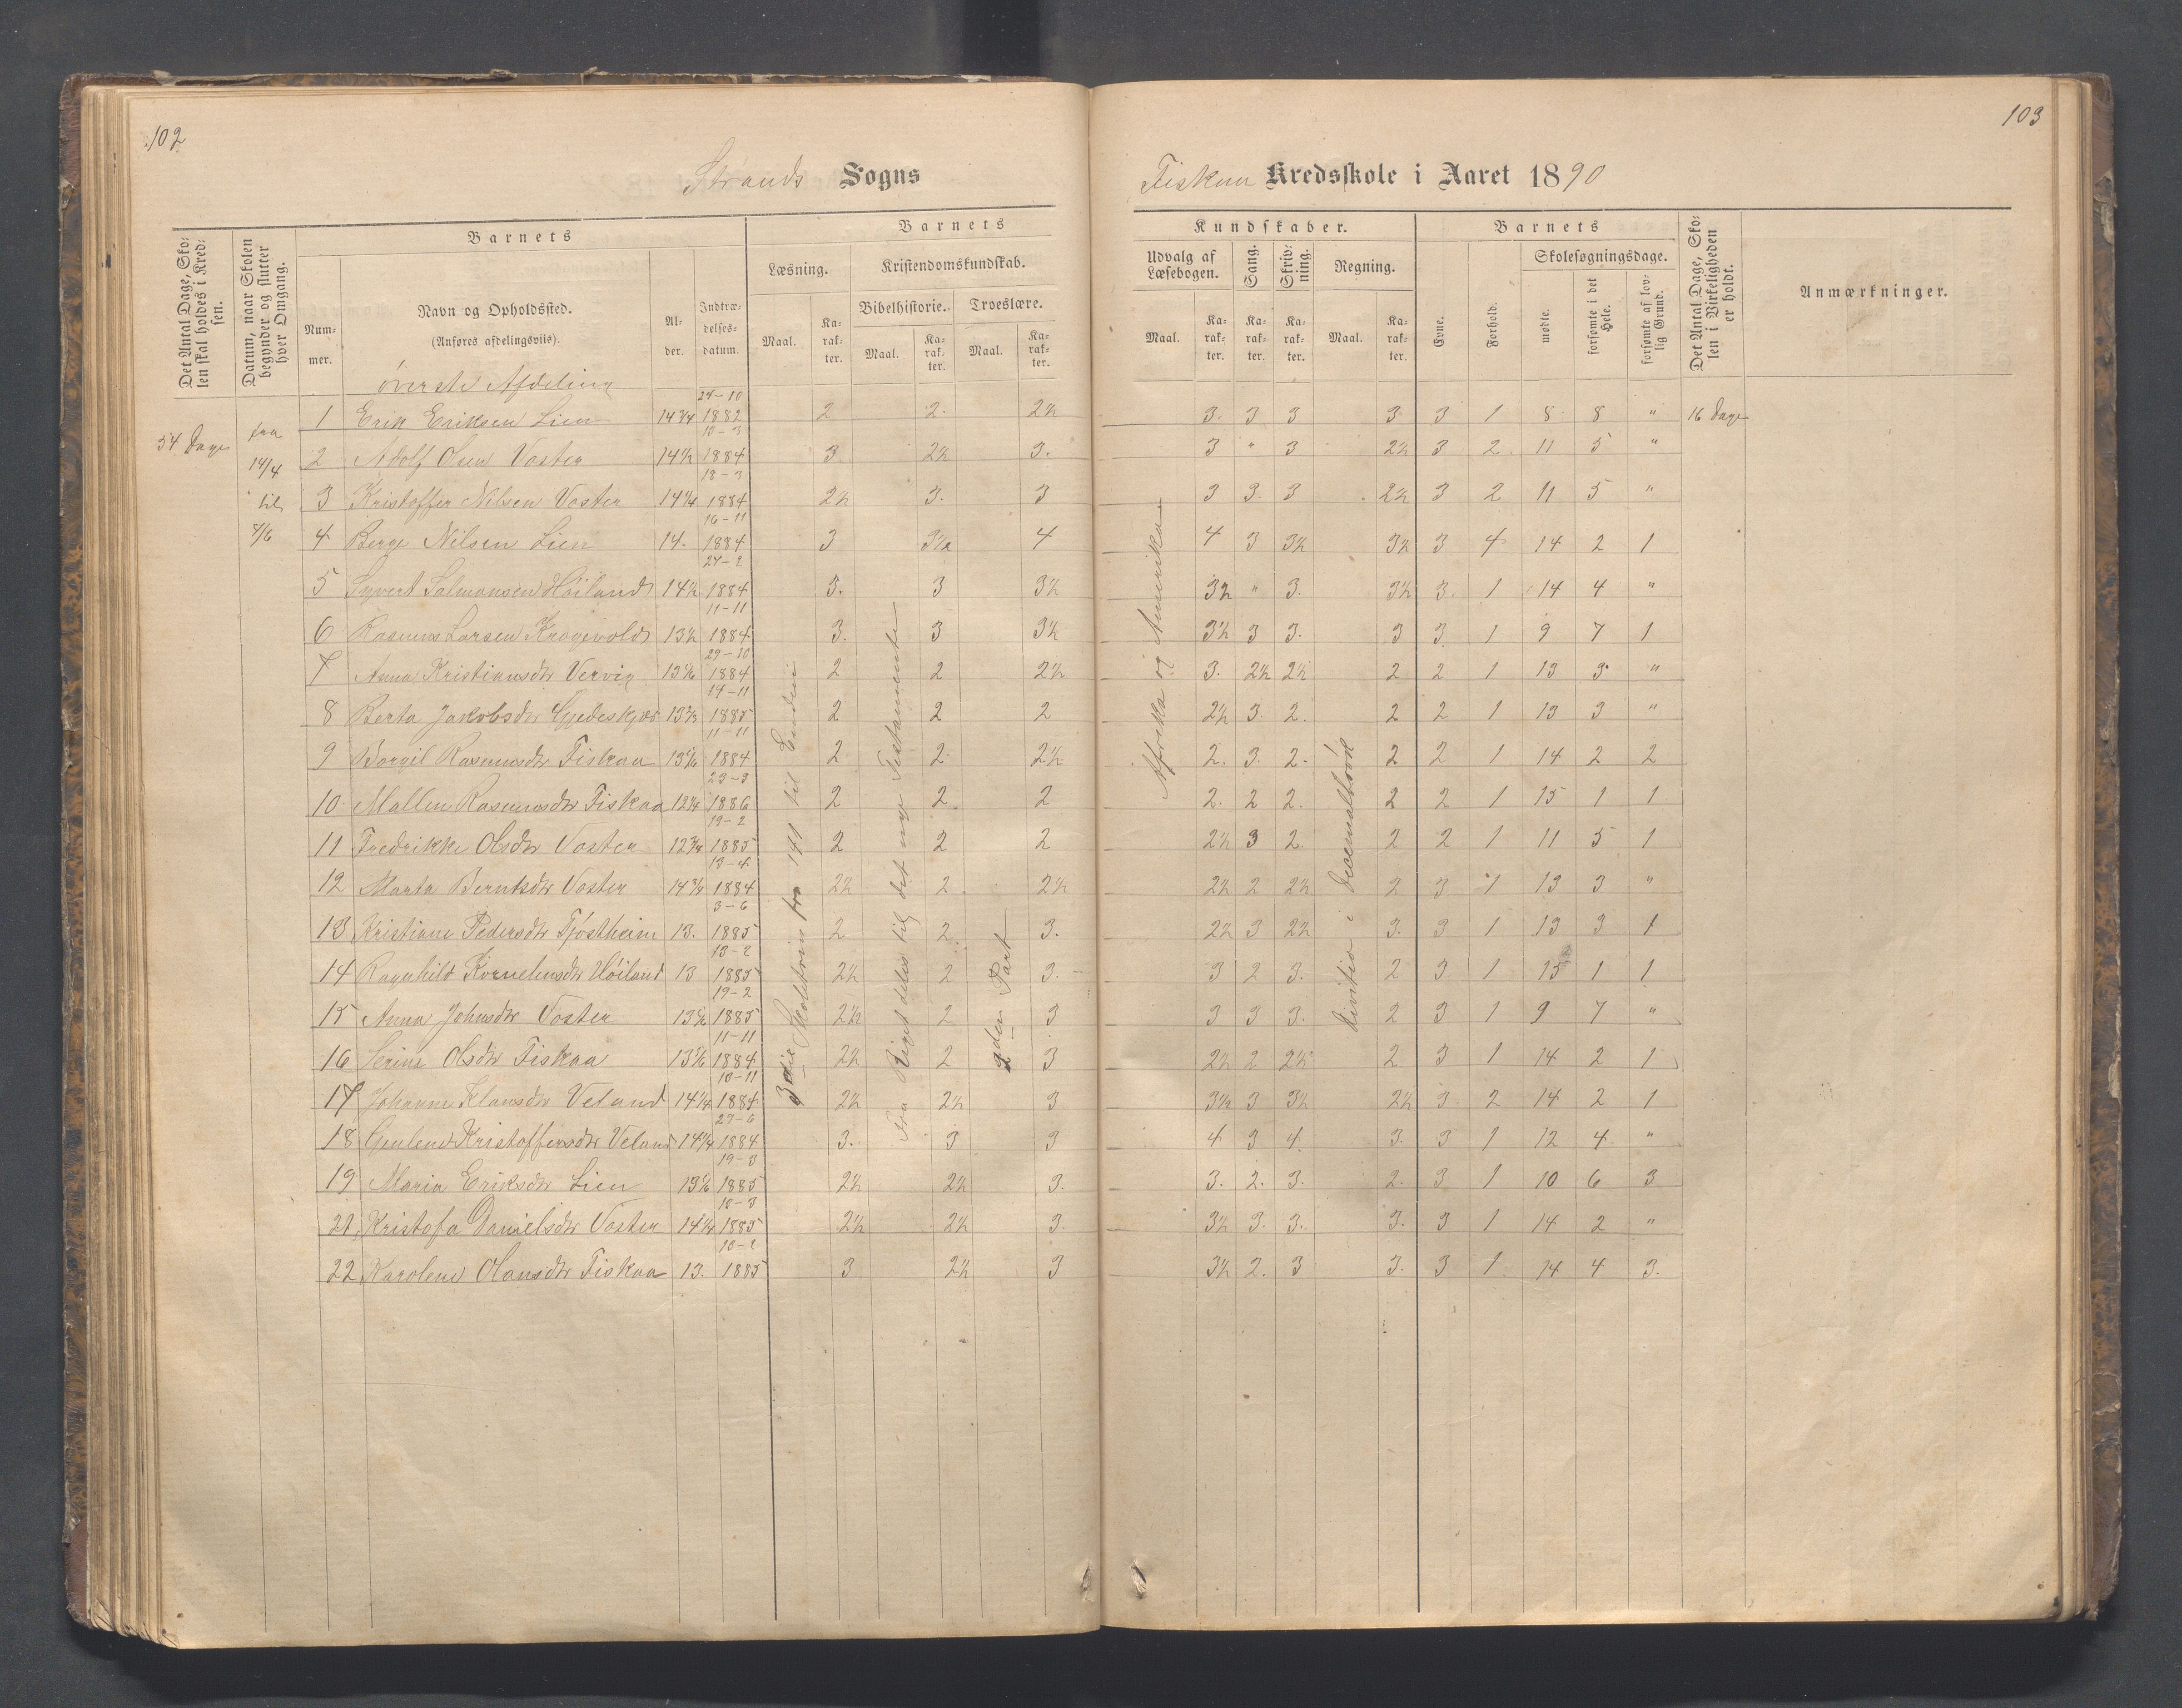 102
103
Strands Sogns
Fiskaa Kredsskole i Aaret 1890
Det Antal Dage, Skolen skal holdes i Kredsen.
Datum, naar Skolen begynder og slutter hver Omgang.
Barnets
Nummer.
Navn og Opholdssted.
(Anføres afdelingsviis).
Alder.
Indtrædelsesdatum.
Barnets
Læsning.
Kristendomskundskab.
Bibelhistorie.
Troeslære.
Maal.
Karakter.
Maal.
Karakter.
Maal.
Karakter.
Kundskaber.
Udvalg af Læsebogen.
Sang.
Skrivning.
Regning.
Maal.
Karakter.
Karakter.
Karakter.
Maal.
Karakter.
Barnets
Evne.
Forhold.
Skolesøgningsdage.
mødte.
forsømte i det Hele.
forsømte af lovlig Grund.
Det Antal Dage, Skolen i Virkeligheden er holdt.
Anmærkninger.
øverste Afdeling
54 Dage
fra
14/4
til
7/6
16 Dage
3die Skoletrin fra 191 til Enden
Fra Riget deles til det nye Testamente
2den Part
Afreka og Amerika
Divition i Decemalbrøk
1 Erik Eriksen Lien 14 3/4 24-10 1882 2 2 2½ 3 3 3 3 3 1 8 8 "
2 Adolf Olsen Voster 14½ 13-3 1884 3 2½ 3 3 " 3 2½ 3 2 11 5 "
3 Kristoffer Nilsen Voster 14¼ 18-3 1884 2½ 3 3 3 3 3 2½ 3 2 11 5 "
4 Berge Nilsen Lien 14 16-11 1884 3 3½ 4 4 3 3½ 3½ 3 4 14 2 1
5 Syvert Salmonsen Høiland 14½ 27-2 1884 3 3 3½ 3½ " 3 3½ 3 1 14 4 "
6 Rasmus Larsen Krogevold 13½ 11-11 1884 3 3 3½ 3½ 3 3 3 3 1 9 7 1
7 Anna Kristiansdtr Vervig 29-10 1884 2 2 2½ 3 2½ 2½ 2 2 1 13 3 "
8 Berta Jakobsdtr Gjedeskjær 14-11 1885 2 2 2 2½ 3 2 2 2 1 13 3 "
9 Borgil Rasmusdtr Fiskaa 11-11 1884 2 2 2½ 2 3 2 2 2 1 14 2 2
10 Mallen Rasmusdtr Fiskaa 12¼ 23-3 1886 2 2 2 2 2 2 2 2 1 15 1 1
11 Fredrikke Olsdtr Voster 12¾ 19-2 1885 2 2 2 2½ 3 2 2 2 1 11 5 1
12 Marta Berntsdtr Voster 13-4 1884 2½ 2 2½ 2½ 2 2½ 2 3 1 13 3 "
13 Kristiane Pedersdtr Tjøstheim 13 3-6 1885 2 2 3 2½ 3 2½ 3 3 1 13 3 1
14 Ragnhild Kornelusdtr Høiland 13 13-2 1885 2½ 2 3 3 2 3 2 3 1 15 1 1
15 Anna Johnsdtr Voster 19-2 1885 2½ 2 3 3 3 3 2 3 1 9 7 "
16 Serine Olsdtr Fiskaa 11-11 1884 2½ 2 3 2½ 2 2½ 2 3 1 14 2 1
17 Johanne Klausdtr Veland 14¼ 10-11 1884 2½ 2½ 3 3½ 3 3½ 2½ 3 2 14 2 1
18 Kristoffersdtr Veland 14¼ 27-6 1884 3 3 3 4 3 4 3 3 1 12 4 "
19 Maria Eriksdtr Lien 19-3 1885 2½ 2½ 3 3 2 3 2 3 1 10 6 3
21 Kristofa Danielsdtr Voster 14¼ 10-3 1885 2½ 2½ 3 3½ 3 3 3 3 1 14 2 "
22 Karolene Olausdtr Fiskaa 13 10-2 1885 3 2½ 3 3½ 2 3 3 3 1 14 4 3